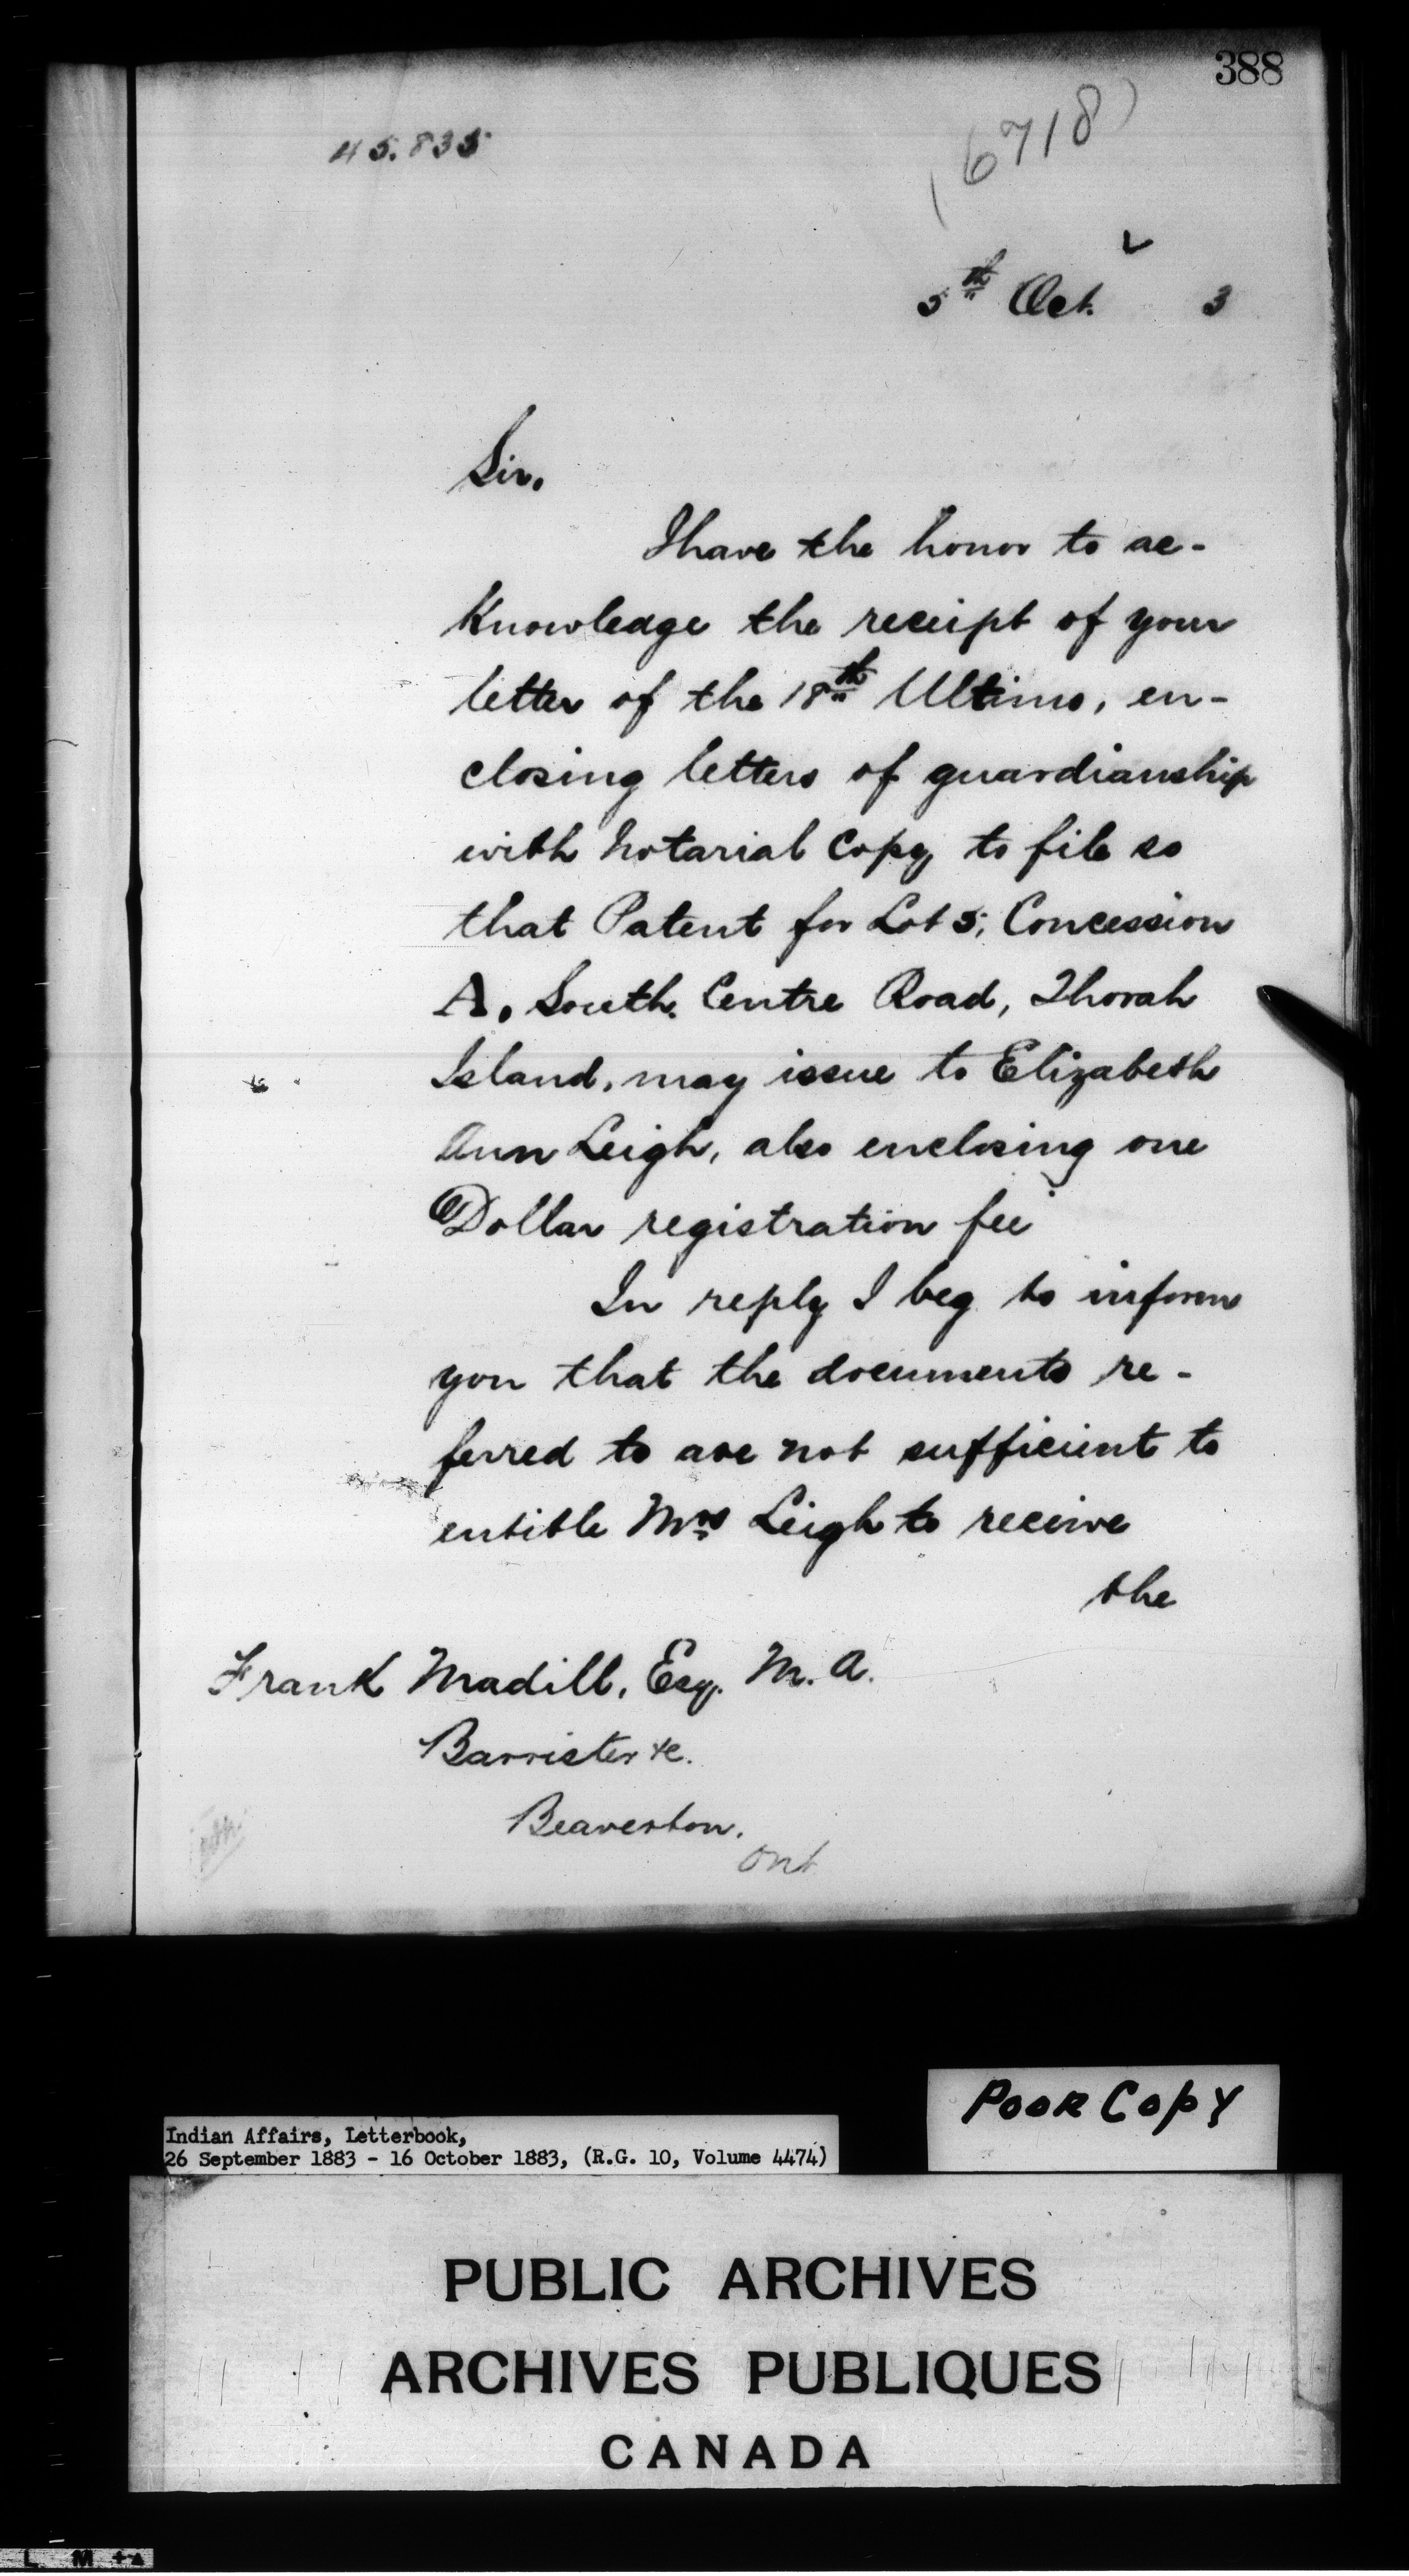 388
45.835
(6718)
5th Oct. 3
Sir.
I have the honor to ac-
knowledge the receipt of your
letter of the 18th Ultimo, en-
closing letters of guardianship
with Notarial Copy to file so
that Patent for Lot 5, Concession
A. South. Centre Road, Thorah
Island, may issue to Elizabeth
Ann Leigh, also enclosing one
Dollar registration fee
In reply I beg to inform
you that the documents re-
ferred to are not sufficient to
entitle Mrs Leigh to receive
the
Frank Madill, Esq. M. A.
Barrister &c.
Beaverton.
Ont
Poor Copy
Indian Affairs, Letterbook,
26 September 1883 - 16 October 1883, (R.G. 10, Volume 4474)
PUBLIC ARCHIVES
ARCHIVES PUBLIQUES
CANADA